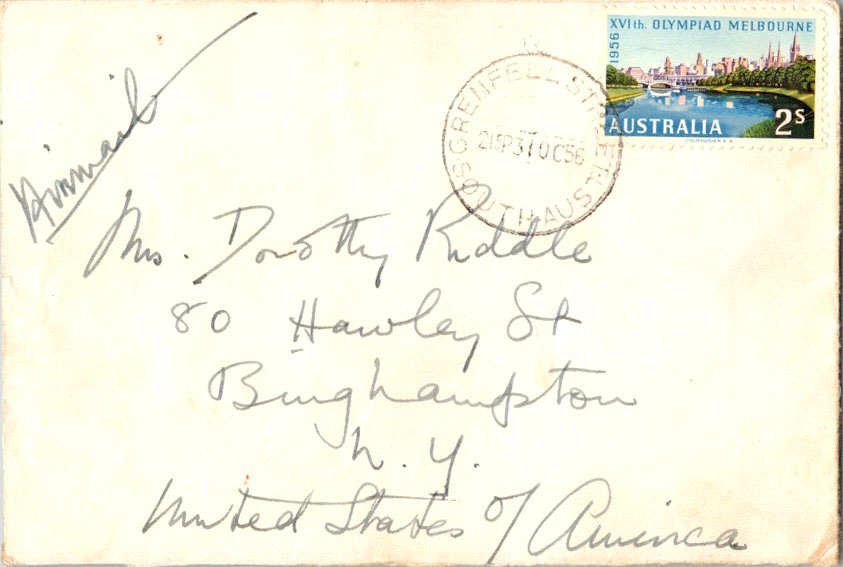 XVIth. OLYMPIAD MELBOURNE
1956
AUSTRALIA 2S
GRENFELL STREET
31 OC 56
SOUTH AUST
Airmail
Mrs. Dorothy Riddle
80 Hawley St
Binghampton
N. Y.
United States of America